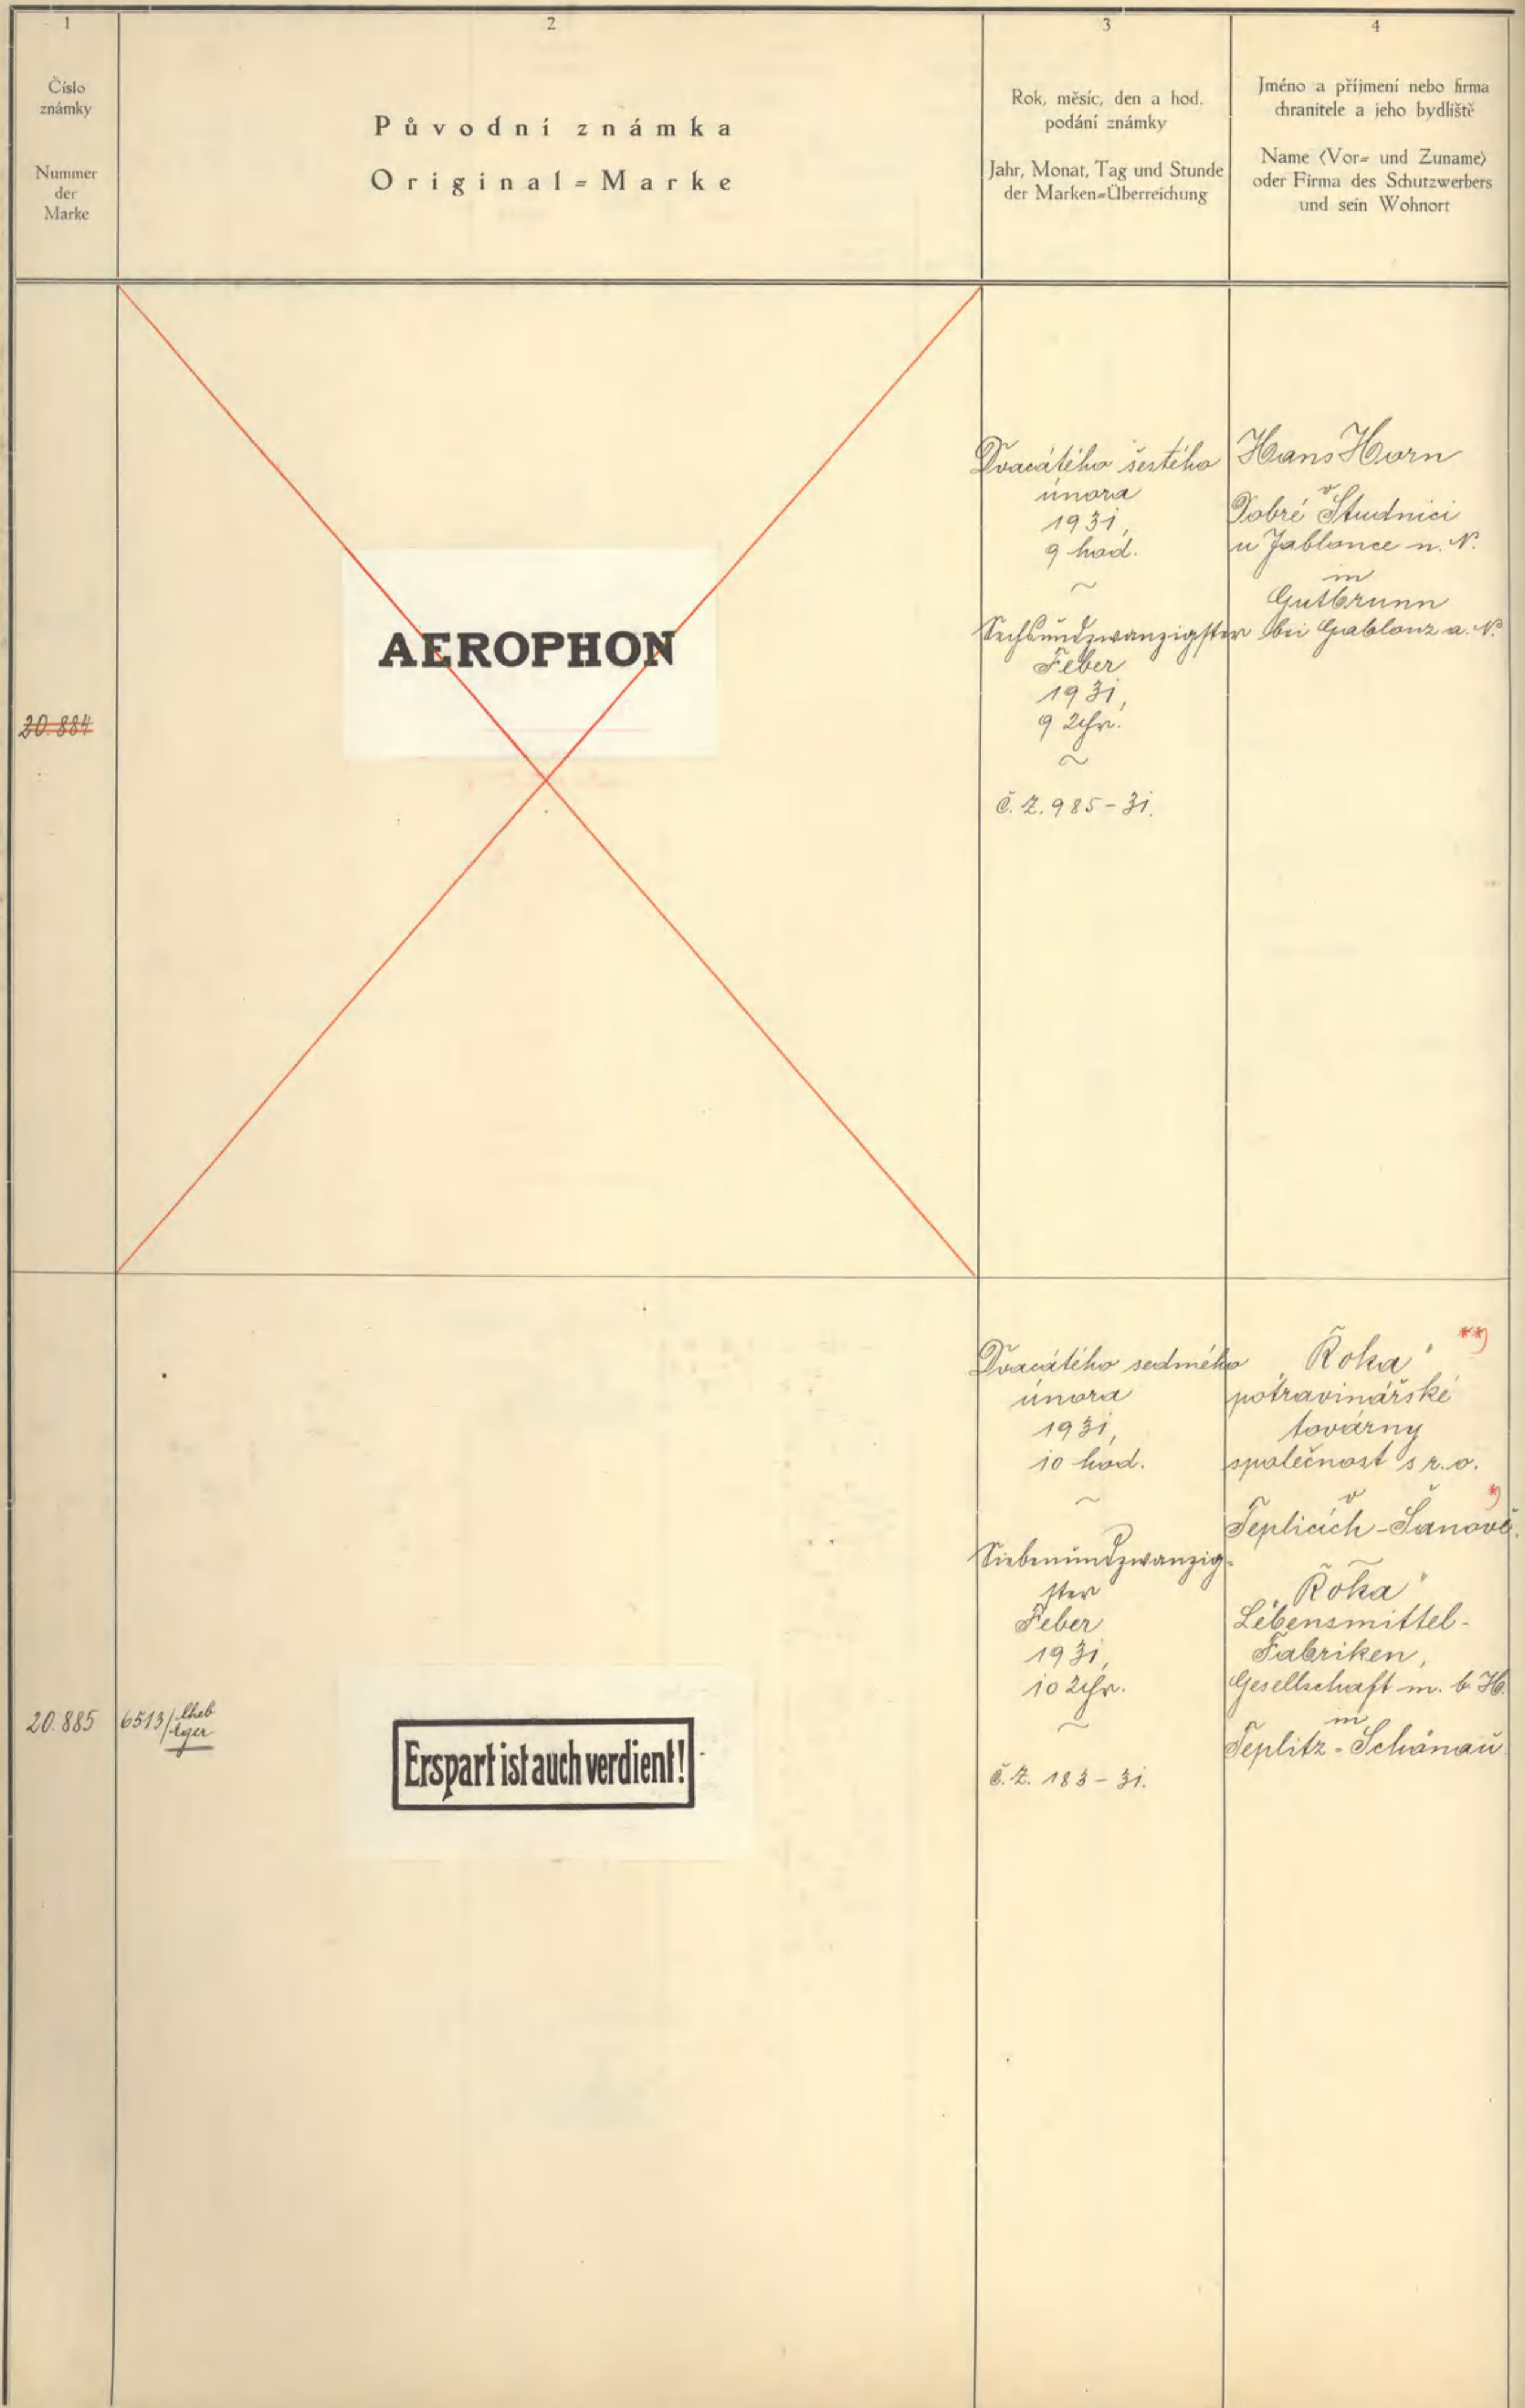 1
Číslo
známky
Nummer
der
Marke
2
Původní známka
Original=Marke
3
Rok, měsíc, den a hod.
podání známky
Jahr, Monat, Tag und Stunde
der Marken=Überreichung
4
Jméno a příjmení nebo firma
chranitele a jeho bydliště
Name (Vor= und Zuname)
oder Firma des Schutzwerbers
und sein Wohnort
20.884
AEROPHON
Dvacátého šestého
února
1931,
9 hod.
~
Sechsundzwanzigster
Feber
1931,
9 Uhr.
~
č. z. 985-31.
Hans Horn
v
Dobré Studnici
u Jablonce n. N.
in
Gutbrunn
bei Gablonz a. N.
20.885
6513/Cheb
Eger
Erspart ist auch verdient!
Dvacátého sedmého
února
1931,
10 hod.
~
Siebenundzwanzig-
ster
Feber
1931,
10 Uhr.
~
č. z. 183-31.
„Röka" **)
potravinářské
továrny
společnost s r. o.
v *)
Teplicích-Šanově.
„Röka"
Lebensmittel-
Fabriken,
Gesellschaft m. b. H.
in
Teplitz-Schönau